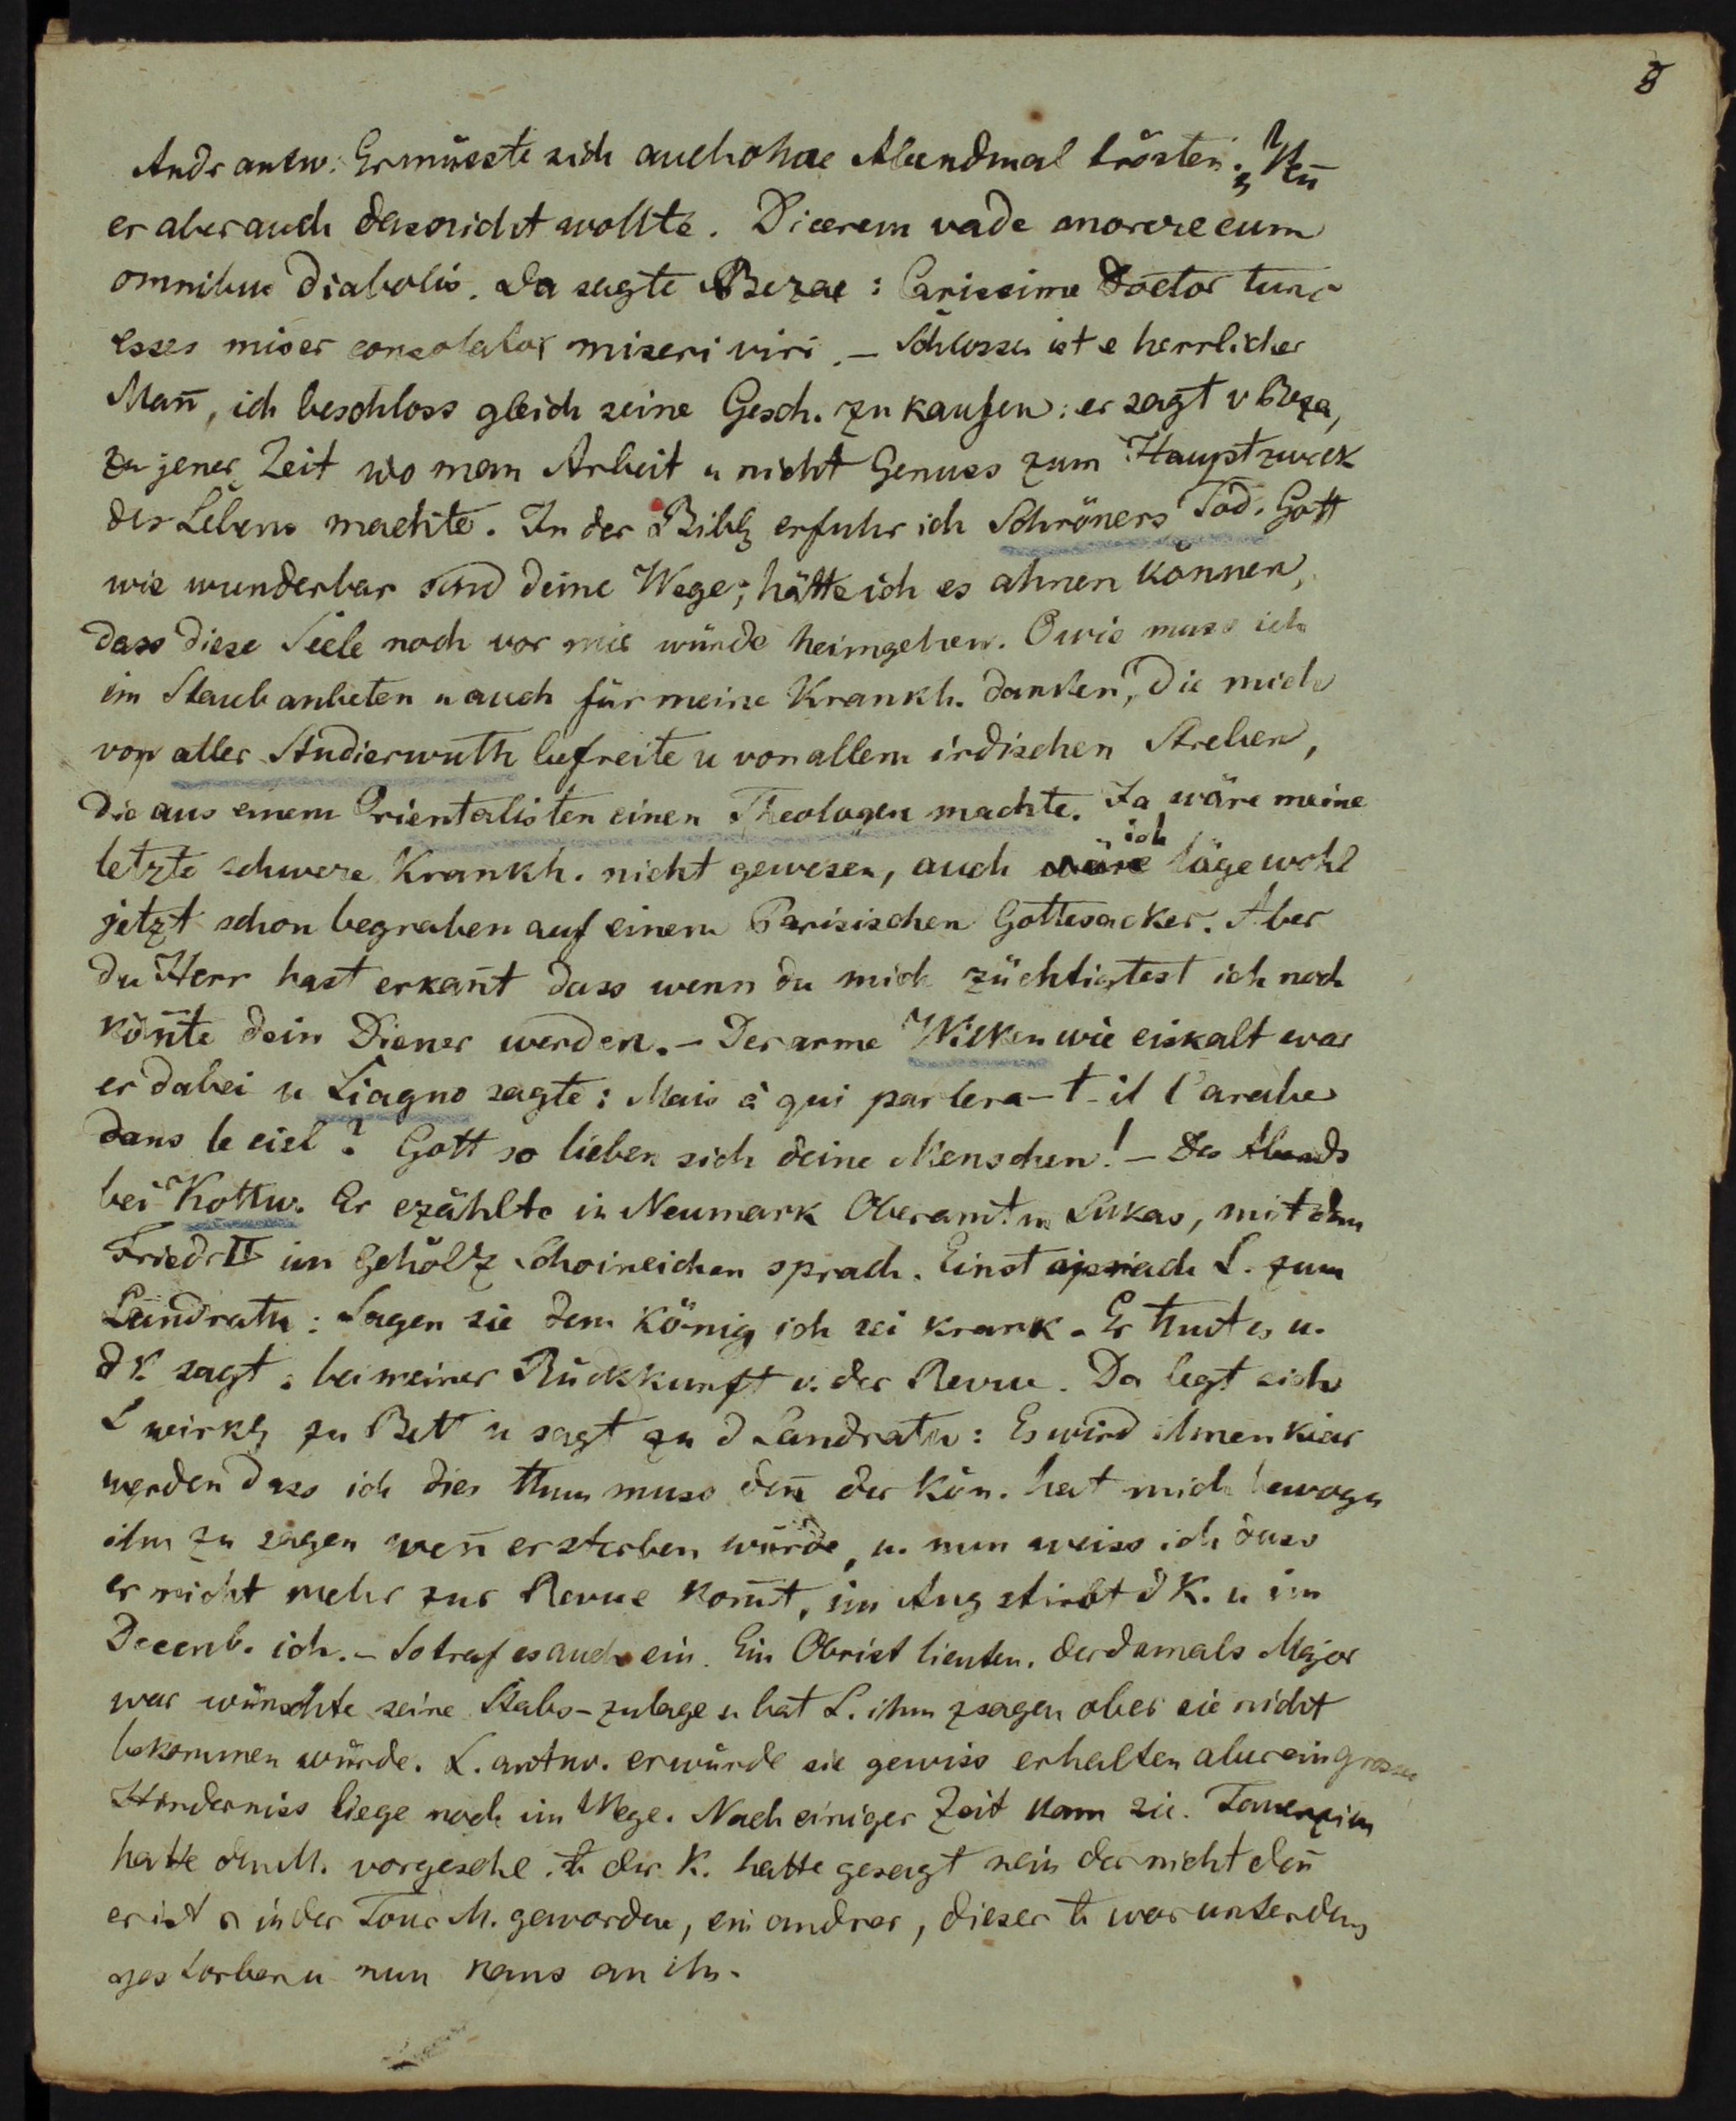 8
Andr antw: Er müsste sich auch ohne Abendmal trösten. Weñ
er aber auch das nicht wollte. Dicerem vade morere cum
omnibus diabolis. Da sagte Bezae: Carissime Doctor tunc
esses miser consolator miseri viri. – Schlosser ist e herrlicher
Mañ, ich beschloss gleich seine Gesch. zu kaufen: er sagt v Beza,
zu jener Zeit wo man Arbeit u nicht Genuss zum Hauptzweck
des Lebens machte. In der Bibl erfuhr ich Schröners Tod. Gott
wie wunderbar sind deine Wege; hätte ich es ahnen können,
dass diese Seele noch vor mir würde heimgehen. O wie muss ich
im Staub anbeten u auch für meine Krankh. danken, die mich
von aller Studierwuth befreite u von allem irdischen Streben,
die aus einem Orientalisten einen Theologen machte. Ja wäre meine
letzte schwere Krankh. nicht gewesen, auch ich läge wohl
jetzt schon begraben auf einem Parisischen Gottesacker. Aber
du Herr hast erkañt dass wenn du mich züchtigtest ich noch
köñte dein Diener werden. – Der arme Wilken wie eiskalt war
er dabei u Liagno sagte: Mais à qui parlera-t-il l'arabe
dans le ciel? Gott so lieben sich deine Menschen! – Des Abends
bei Kottw. Er ezählte in Neumark Oberamtm Lukas, mit dem
Friedr II im Gehölz Schoineichen sprach. Einst sprach L. zum
Landrath: Sagen sie dem König ich sei krank. Er thut es u.
d K. sagt: bei meiner Rückkunft v. der Revue. Da legt sich
L wirkl zu Bett u sagt zu d Landrath: Es wird ihnen klar
werden dass ich dies thun muss deñ der Kön. hat mich bewogen
ihm zu sagen weñ er sterben würde, u. nun weiss ich dass
er nicht mehr zur Revue kom̄t, im Aug stirbt d K. u im
Decemb. ich. – So traf es auch ein. Ein Obristlieuten. der damals Major
war wünschte seine Stabs-zulage u bat L. ihm z sagen ob er sie nicht
bekommen würde. L. antw. er würde sie gewiss erhalten aber ein grosses
Hinderniss liege noch im Wege. Nach einiger Zeit kam sie. Tauenzien
hatte den M. vorgeschl. der K. hatte gesagt nein der nicht deñ
er ist in der Tour M. geworden, ein andrer, dieser war unterdess
gestorben u nun kams an ihn.